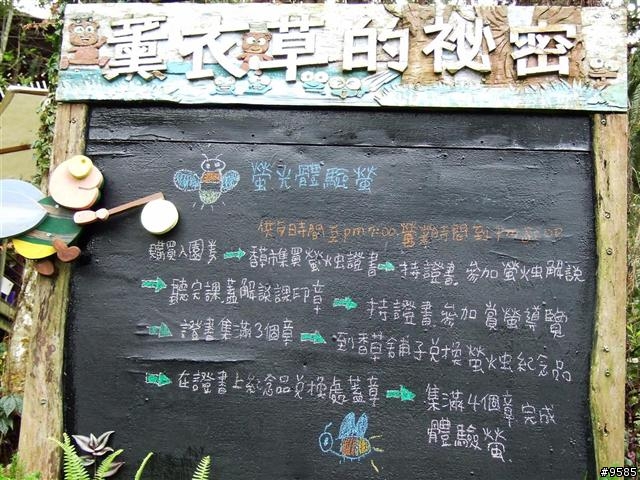 薰衣草的祕密
螢光體驗營
供餐時間至pm7:00.營業時間到pm8:00
購買入園券→香草市集買螢火虫證書→持證書參加螢火虫解說
→聽完課蓋解說課印章→持證書參加賞螢導覽
→證書集滿3個章→到香草舖子兌換螢火虫紀念品
→在證書上紀念品兌換處蓋章→集滿4個章完成
體驗營
#9585